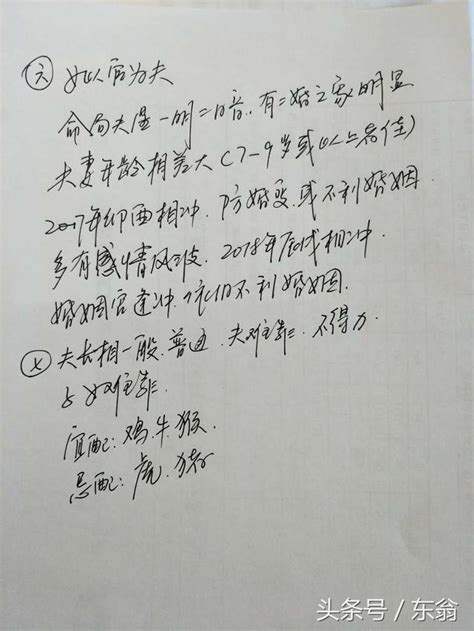 ㊅ 女以官为夫
命局夫星一明二暗.有二婚之象明显
夫妻年龄相差大(7-9岁或以上者佳)
2017年卯酉相冲.防婚变.或不利婚姻
多有感情风波.2018年辰戌相冲.
婚姻宫逢冲.仍不利婚姻.
㊆ 夫长相一般.普通.夫难靠.不得力
女难靠.
宜配:鸡.牛.猴.
忌配:虎.猪
头条号/东翁